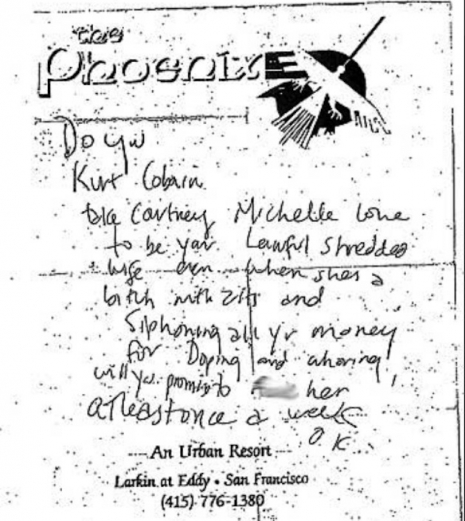 the
Phoenix
Do you
Kurt Cobain
take Courtney Michelle Love
to be your Lawful Shredded
wife even when shes a
bitch with zits and
Siphoning all yr money
for Doping and whoring
will you promise to her
atleast once a week
O.K
An Urban Resort
Larkin at Eddy • San Francisco
(415) 776-1380